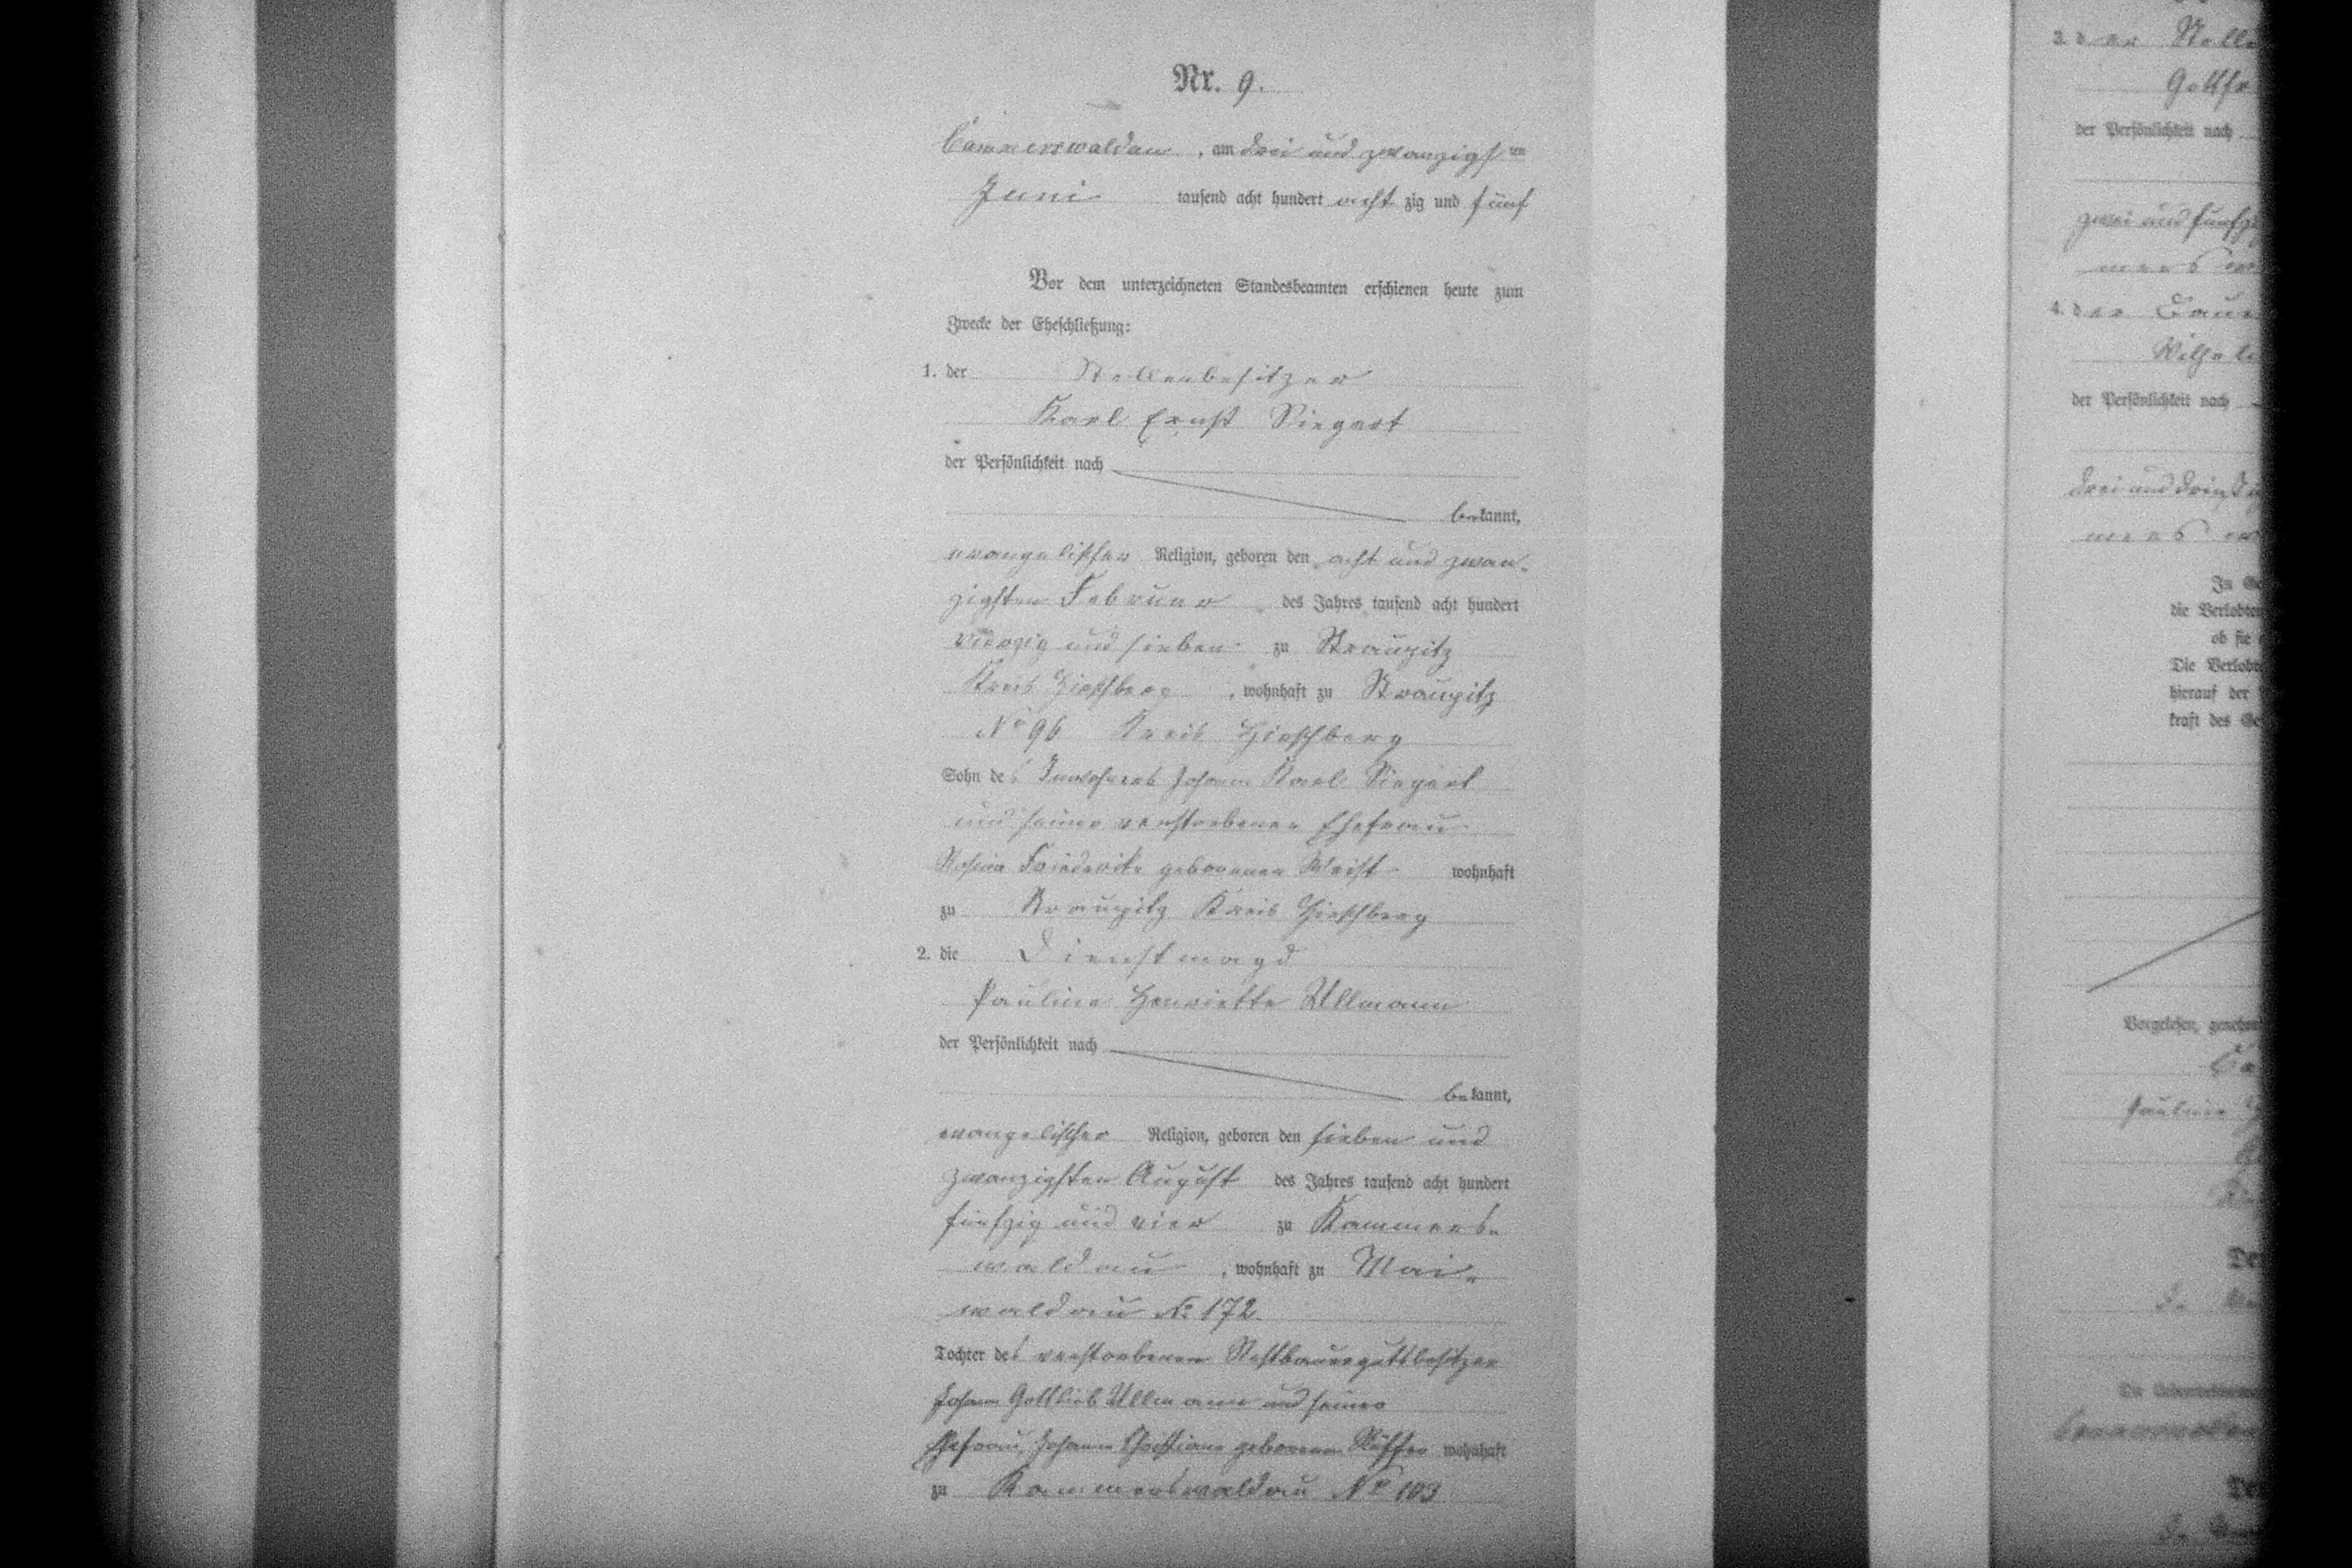 Nr. 9.
Cammerswaldau, am drei und zwanzigsten
Juni tausend acht hundert acht zig und fünf
Vor dem unterzeichneten Standesbeamten erschienen heute zum
Zwecke der Eheschließung:
1. der Stellenbesitzer
Karl Ernst Siegert
der Persönlichkeit nach
bekannt,
evangelischer Religion, geboren den acht und zwan-
zigsten Februar des Jahres tausend acht hundert
vierzig und sieben zu Straupitz
Kreis Hirschberg, wohnhaft zu Straupitz
No 96 Kreis Hirschberg
Sohn des Inwohners Johann Karl Siegert
und seiner verstorbenen Ehefrau
Rosina Friederike geborenen Weist wohnhaft
zu Straupitz Kreis Hirschberg
2. die Dienstmagd
Pauline Henriette Ullmann
der Persönlichkeit nach
bekannt,
evangelischer Religion, geboren den sieben und
zwanzigsten August des Jahres tausend acht hundert
fünfzig und vier zu Kammers-
waldau, wohnhaft zu Mai-
waldau No 172
Tochter des verstorbenen Restbauergutsbesitzer
Johann Gottlieb Ullmann und seiner
Ehefrau, Johanne Christiane geborenen wohnhaft
zu Kammerswaldau No 103
3. der
Gottfr
der Persönlichkeit nach
zwei und fünfzig
4. der
Wilhel
der Persönlichkeit nach
drei und dreißig
In Ge
die Verlobten
ob sie
Die Verlobt
hierauf der
kraft des Ge
Vorgelesen, geneh
Pauline
De
De